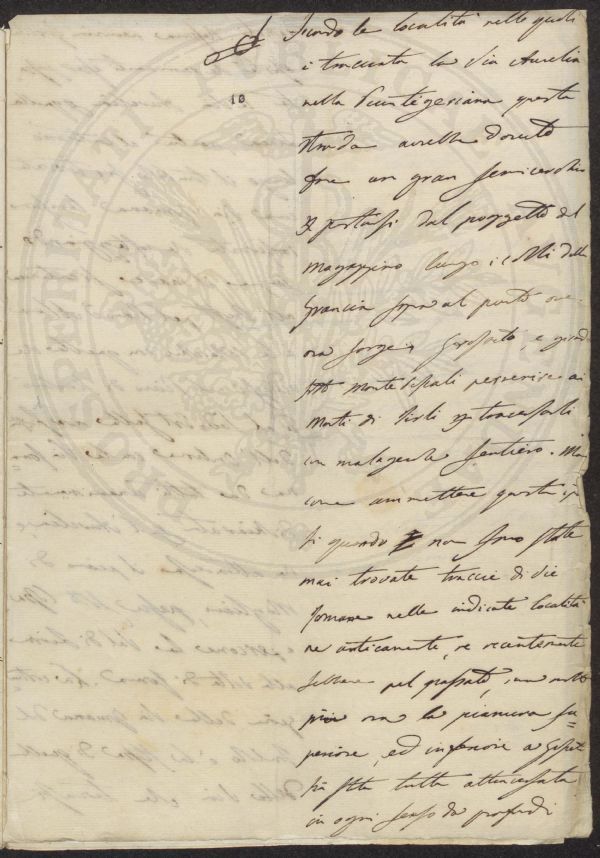 Secondo le località nelle quali
è tracciata la Via Aurelia
nella Peutegeriana questa
strada avrebbe dovuto
fare un gran semicerchio
e portarsi dal poggetto del
Magazzino lungo i colli della
Grancia sopra al punto ove
ora sorge Grosseto, e quindi
sotto Monte Pescali pervenire ai
Monti di
un malagevole sentiero. Ma
come ammettere questa
quando non sono state
mai trovate traccie di vie
romane nelle indicate località
ne anticamente, ne recentemente
sebbene nel passato, 
più ora la pianura su-
periore, ed inferiore a
sia stata tutta attraversata
in ogni senso da profondi
10